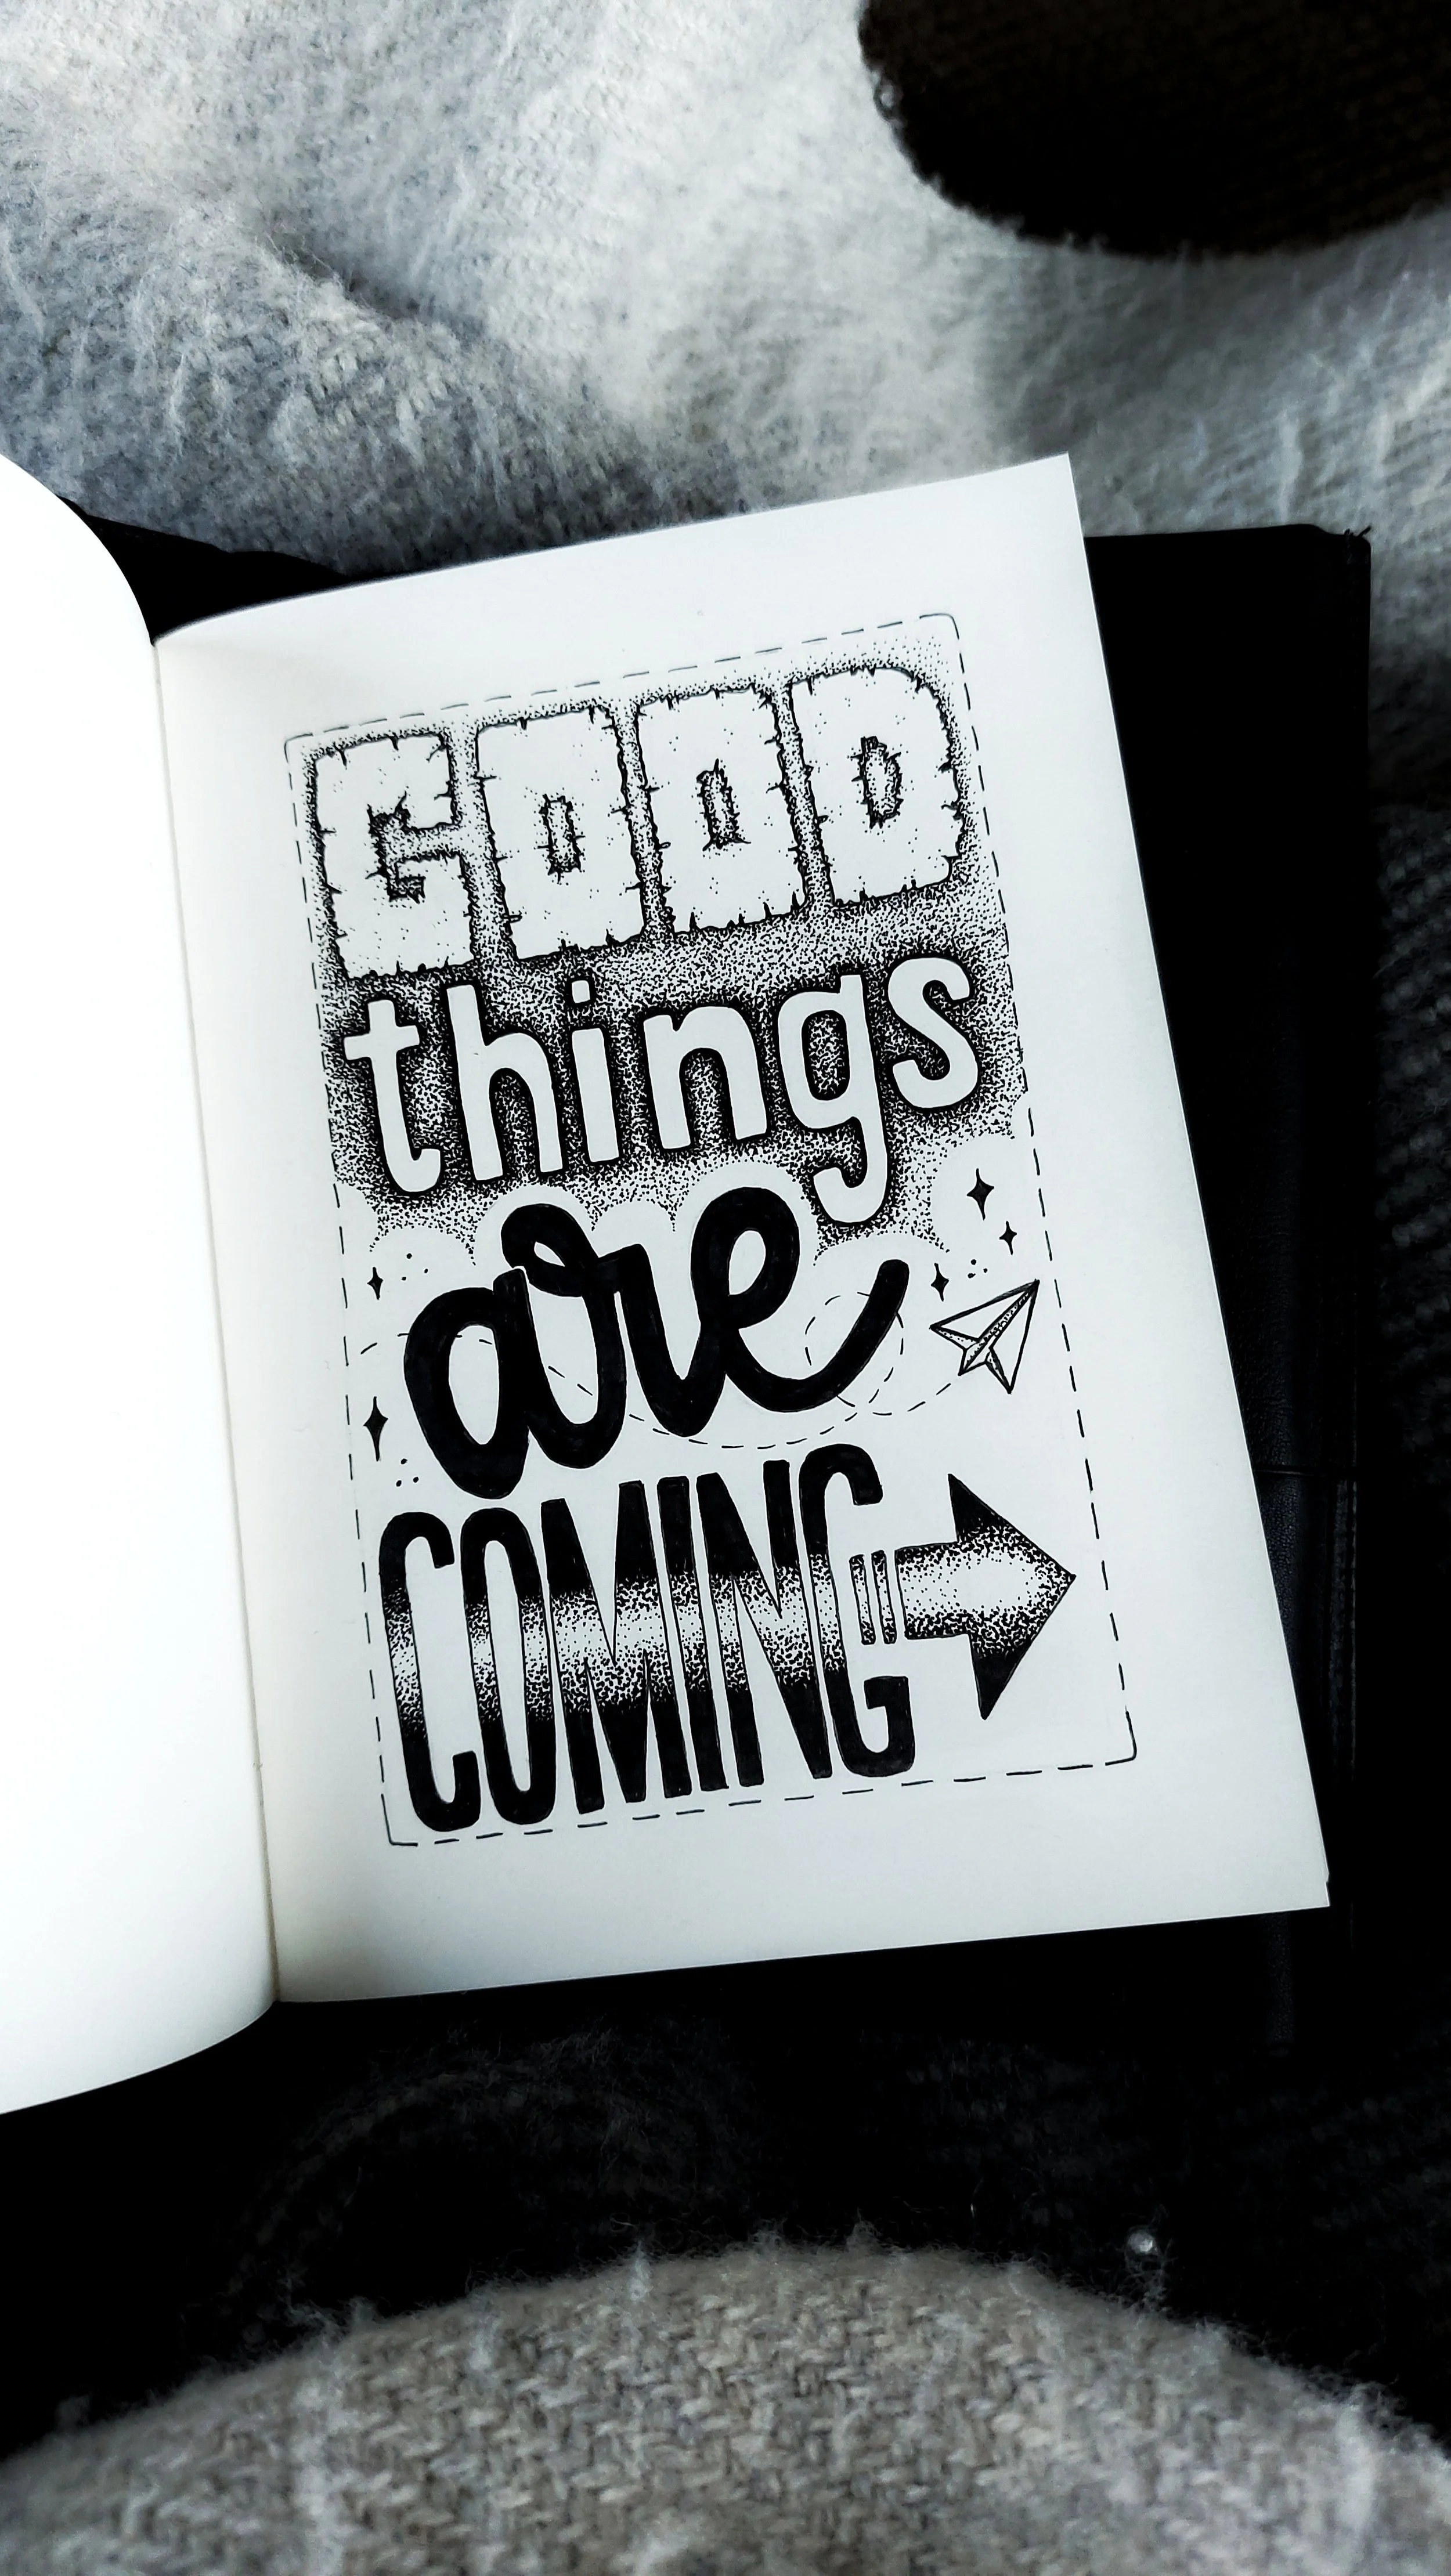 GOOD
things
are
COMING